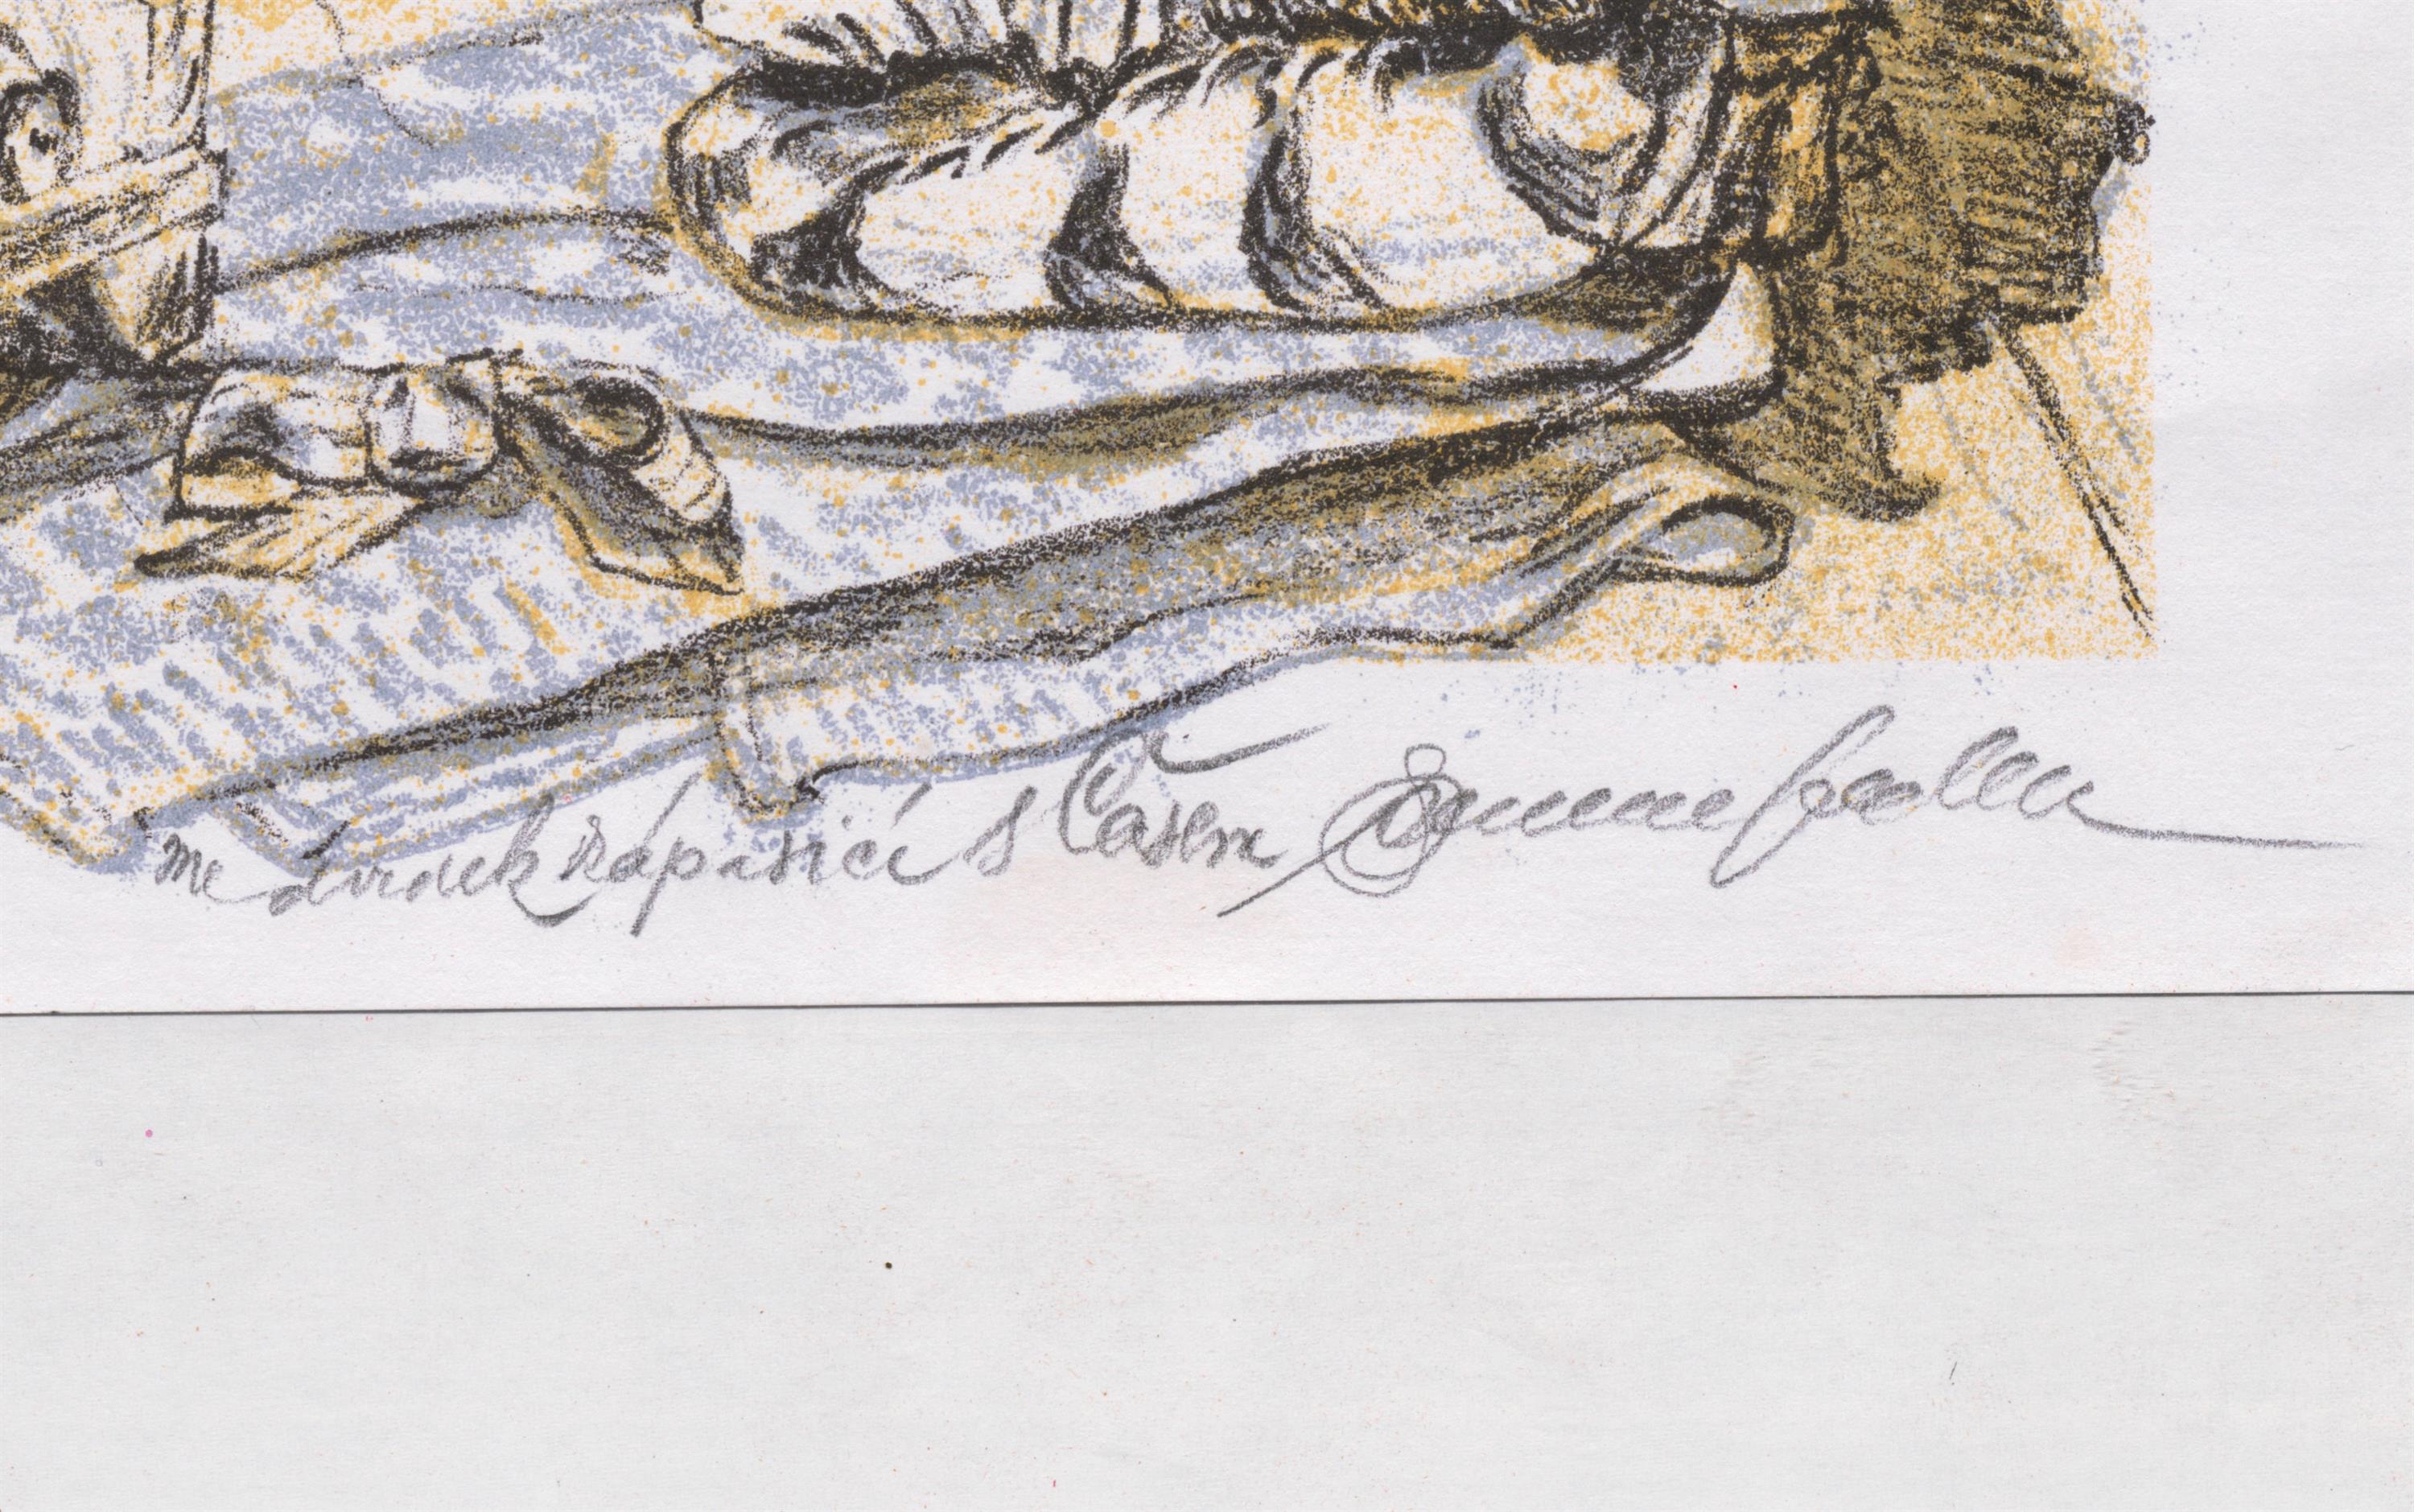 medvídek zápasící s Časem